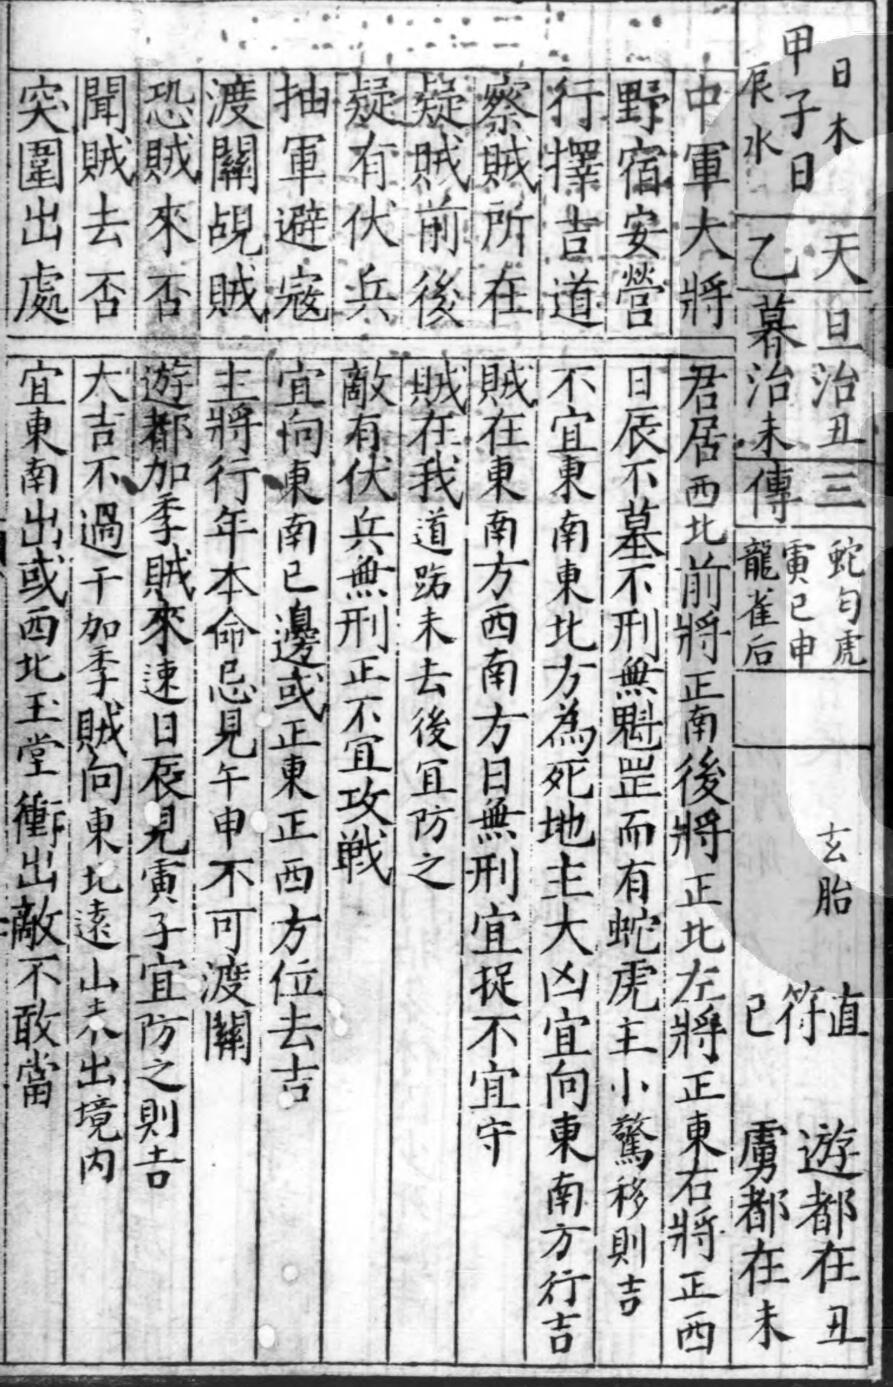 甲子日
日木
辰水
天乙
旦治丑
暮治未
三傳
蛇勾虎
寅巳申
龍雀后
玄胎
直符巳
遊都在丑
虜都在未
中軍大將 君居西北前將正南後將正北左將正東右將正西
野宿安營 日辰不墓不刑無魁罡而有蛇虎主小驚移則吉
行擇吉道 不宜東南東北方為死地主大凶宜向東南方行吉
察賊所在 賊在東南方西南方日無刑宜捉不宜守
疑賊前後 賊在我道路未去後宜防之
疑有伏兵 敵有伏兵無刑正不宜攻戰
抽軍避寇 宜向東南巳邊或正東正西方位去吉
渡關覘賊 主將行年本命忌見午申不可渡關
恐賊來否 遊都加季賊來速日辰見寅子宜防之則吉
聞賊去否 大吉不過干加季賊向東北遠山未出境內
突圍出處 宜東南出或西北玉堂衝出敵不敢當